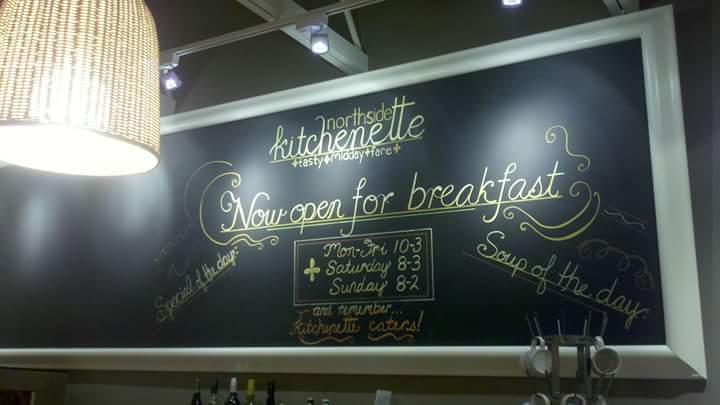 northside
kitchenette
+tasty+midday+fare+
Now open for breakfast
Special of the day:
Mon-Fri 10-3
Saturday 8-3
Sunday 8-2
Soup of the day:
and remember...
Kitchenette caters!